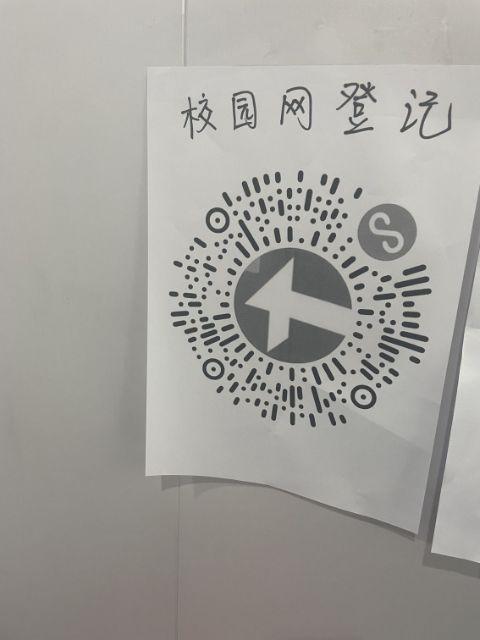 校园网登记